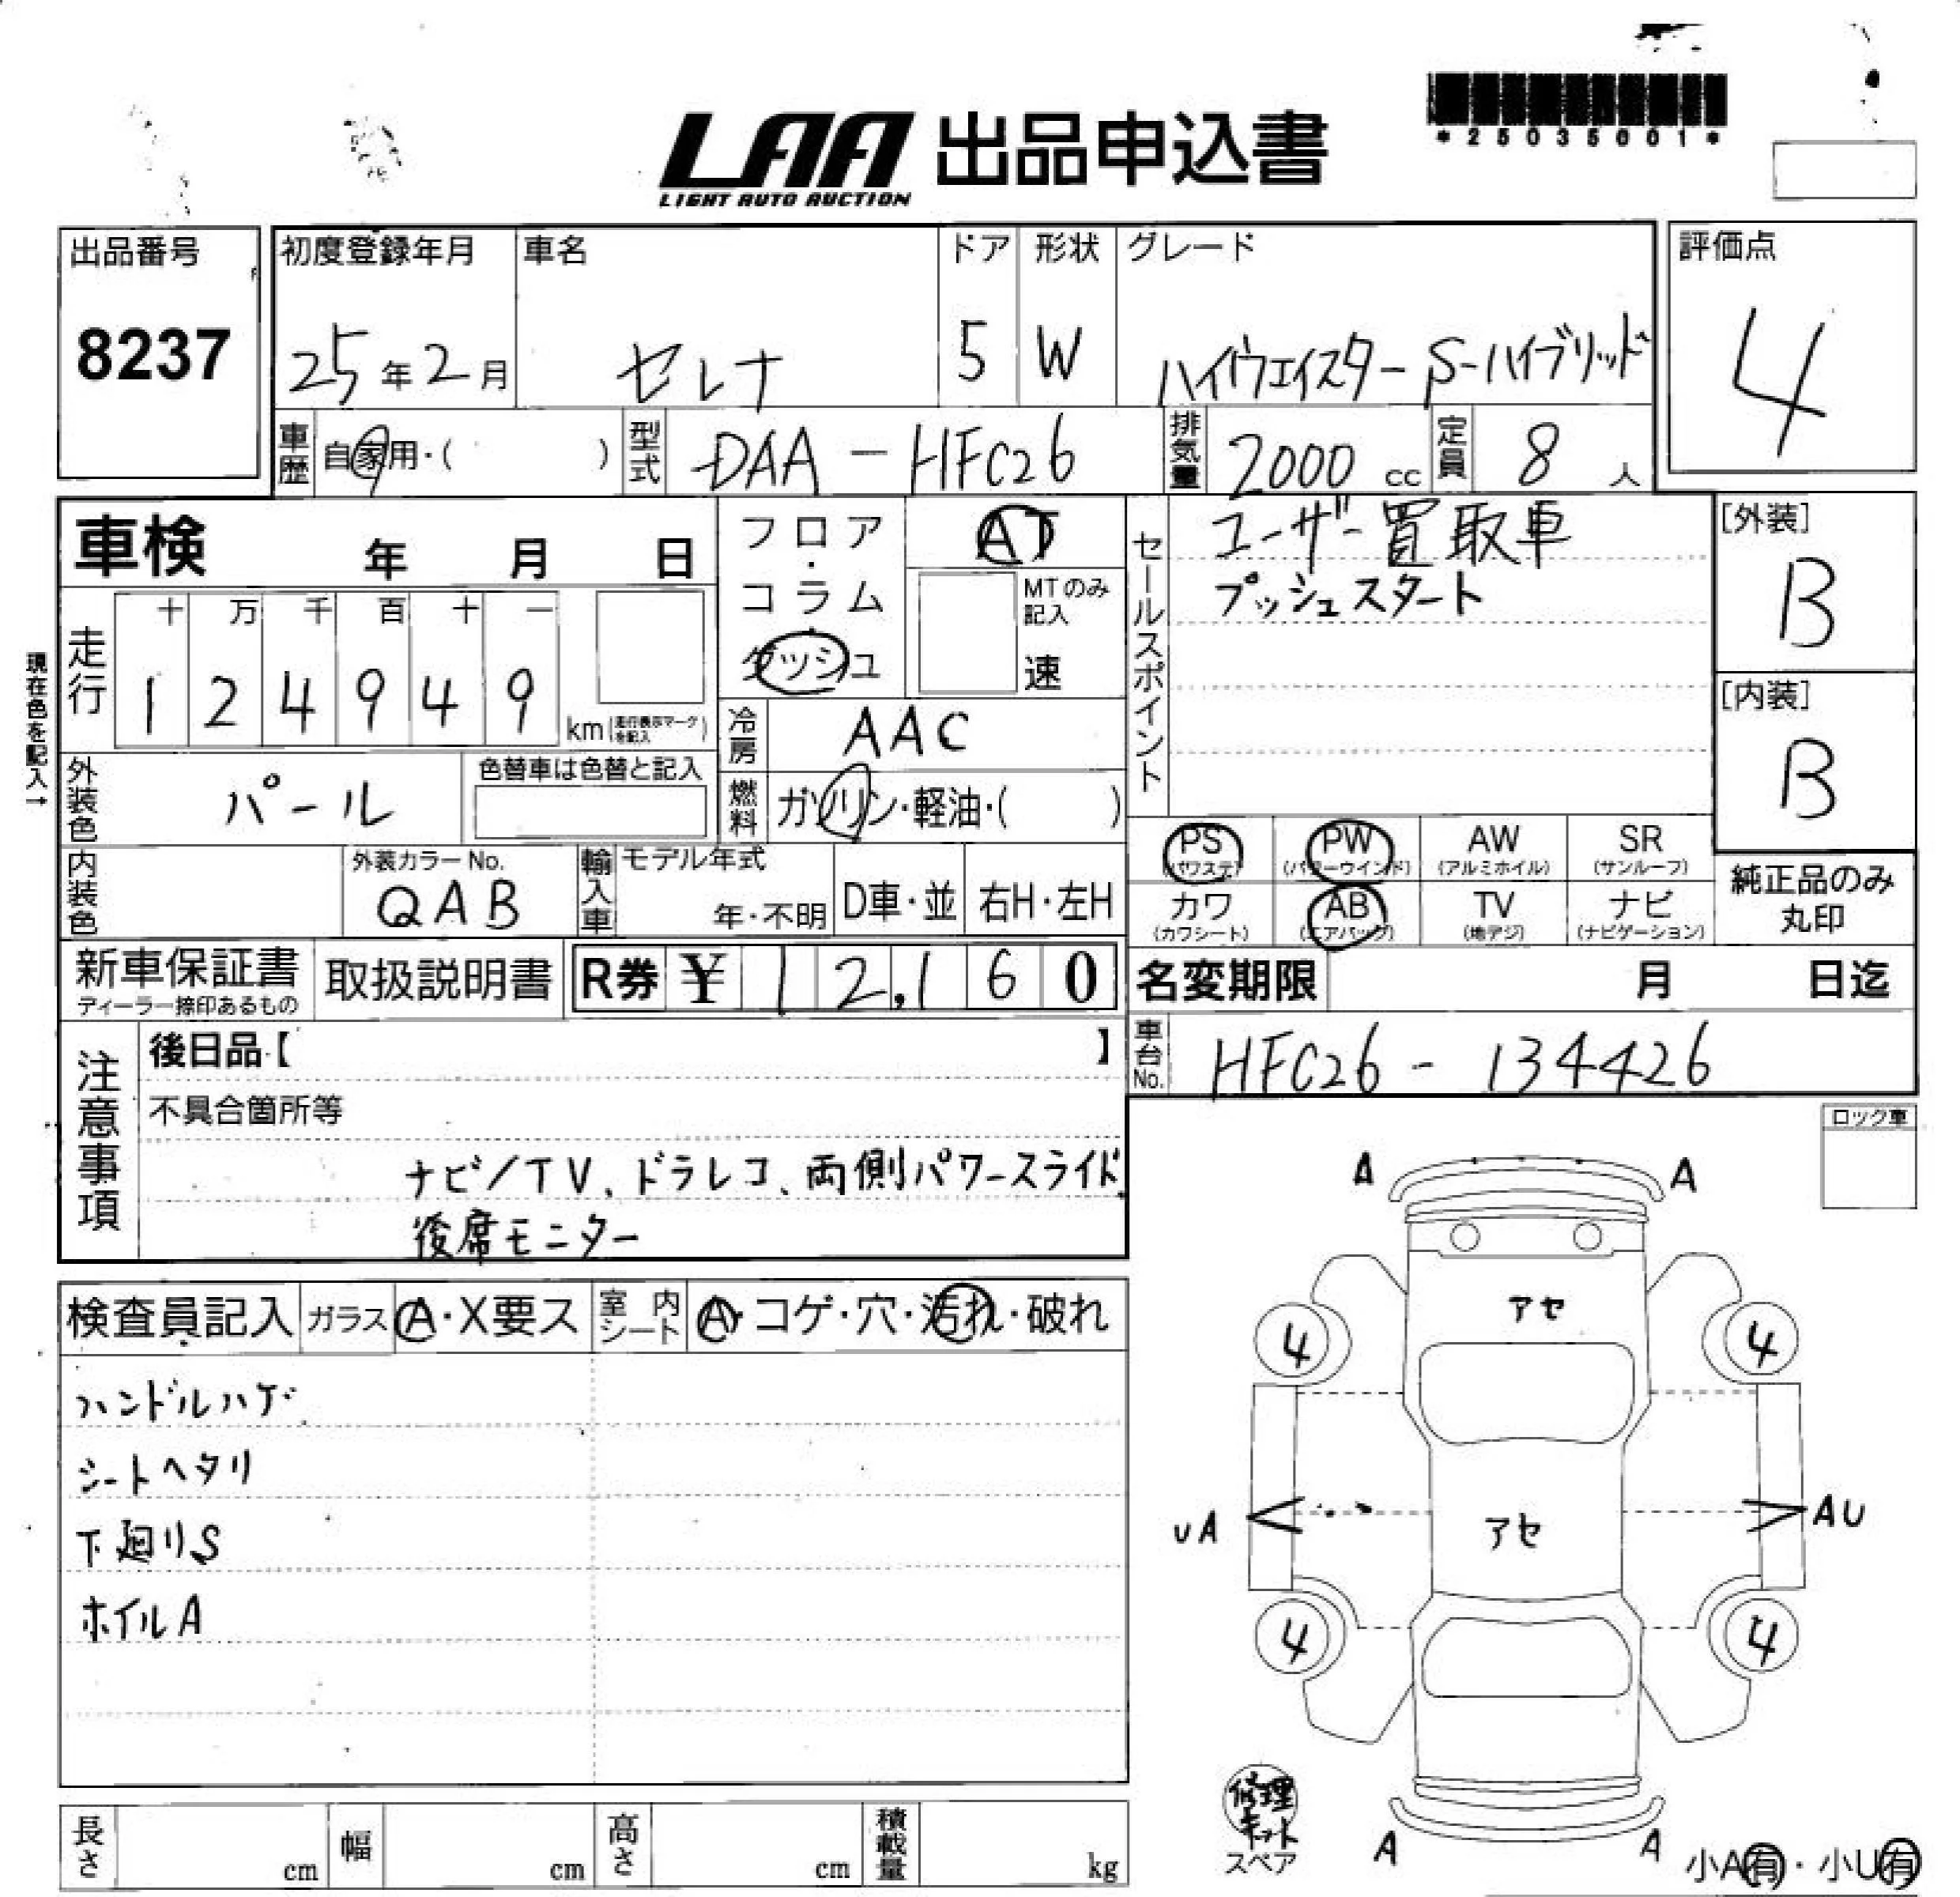 LAA 出品申込書
LIGHT AUTO AUCTION
*25035001*
出品番号
8237
初度登録年月
25年2月
車名
セレナ
ドア
5
形状
W
グレード
ハイウェイスター S-ハイブリッド
評価点
4
車歴
自家用・( )
型式
DAA-HFC26
排気量
2000 cc
定員
8 人
車検 年 月 日
フロア・コラム・ダッシュ
AT
MTのみ記入
速
セールスポイント
ユーザー買取車
プッシュスタート
[外装]
B
[内装]
B
現在色を記入→
走行
十 万 千 百 十 一
1 2 4 9 4 9
km(走行表示マークを記入)
冷房
AAC
外装色
パール
色替車は色替と記入
燃料
ガソリン・軽油・( )
内装色
外装カラーNo.
QAB
輸入車
モデル年式
年・不明
D車・並
右H・左H
PS
(パワステ)
PW
(パワーウインド)
AW
(アルミホイル)
SR
(サンルーフ)
カワ
(カワシート)
AB
(エアバッグ)
TV
(地デジ)
ナビ
(ナビゲーション)
純正品のみ
丸印
新車保証書
ディーラー捺印あるもの
取扱説明書
R券 ¥ 12,160
名変期限 月 日迄
車台No.
HFC26-134426
注意事項
後日品【 】
不具合箇所等
ナビ/TV、ドラレコ、両側パワースライド
後席モニター
ロック車
検査員記入
ガラス
A・X要ス
室内シート
A・コゲ・穴・汚れ・破れ
ハンドルハゲ
シートヘタリ
下廻りS
ホイルA
A A
アセ
4 4
UA AU
アセ
4 4
A A
修理キット
スペア
小A有・小U有
長さ cm
幅 cm
高さ cm
積載量 kg